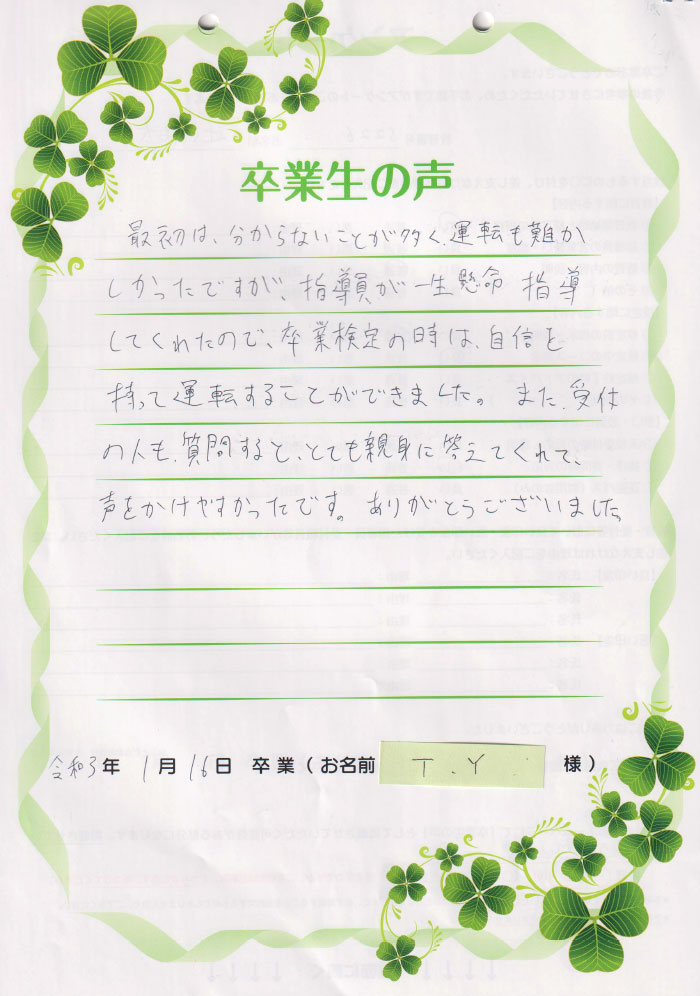 卒業生の声
最初は、分からないことが多く、運転も難か
しかったですが、指導員が一生懸命 指導
してくれたので、卒業検定の時は、自信を
持って運転することができました。また、受付
の人も、質問すると、とても親身に答えてくれて、
声をかけやすかったです。ありがとうございました。
令和3年 1月 16日 卒業(お名前 T.Y 様)